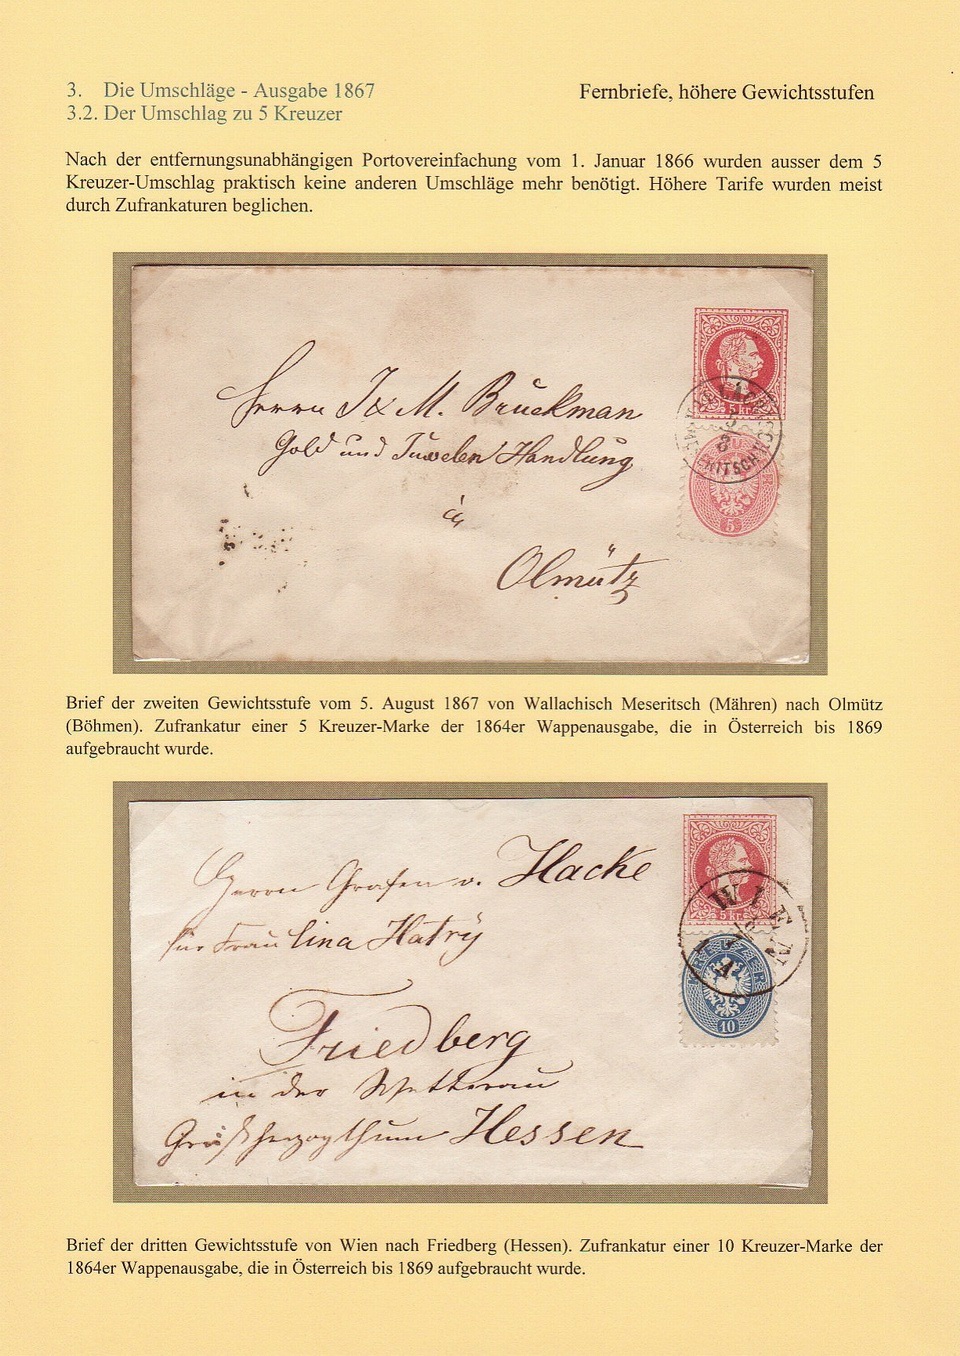 3. Die Umschläge - Ausgabe 1867
Fernbriefe, höhere Gewichtsstufen
3.2. Der Umschlag zu 5 Kreuzer
Nach der entfernungsunabhängigen Portovereinfachung vom 1. Januar 1866 wurden ausser dem 5
Kreuzer-Umschlag praktisch keine anderen Umschläge mehr benötigt. Höhere Tarife wurden meist
durch Zufrankaturen beglichen.
5 kr
Herrn J & M. Bruckman
Gold und Juwelen Handlung
5
8
in
5
Olmütz
Brief der zweiten Gewichtsstufe vom 5. August 1867 von Wallachisch Meseritsch (Mähren) nach Olmütz
(Böhmen). Zufrankatur einer 5 Kreuzer-Marke der 1864er Wappenausgabe, die in Österreich bis 1869
aufgebraucht wurde.
Herrn Grafen v. Hacke
5 kr
WIEN
für Frau Lina Hatry
KREUZER
10
Friedberg
in der Wetterau
Großherzogthum Hessen
Brief der dritten Gewichtsstufe von Wien nach Friedberg (Hessen). Zufrankatur einer 10 Kreuzer-Marke der
1864er Wappenausgabe, die in Österreich bis 1869 aufgebraucht wurde.